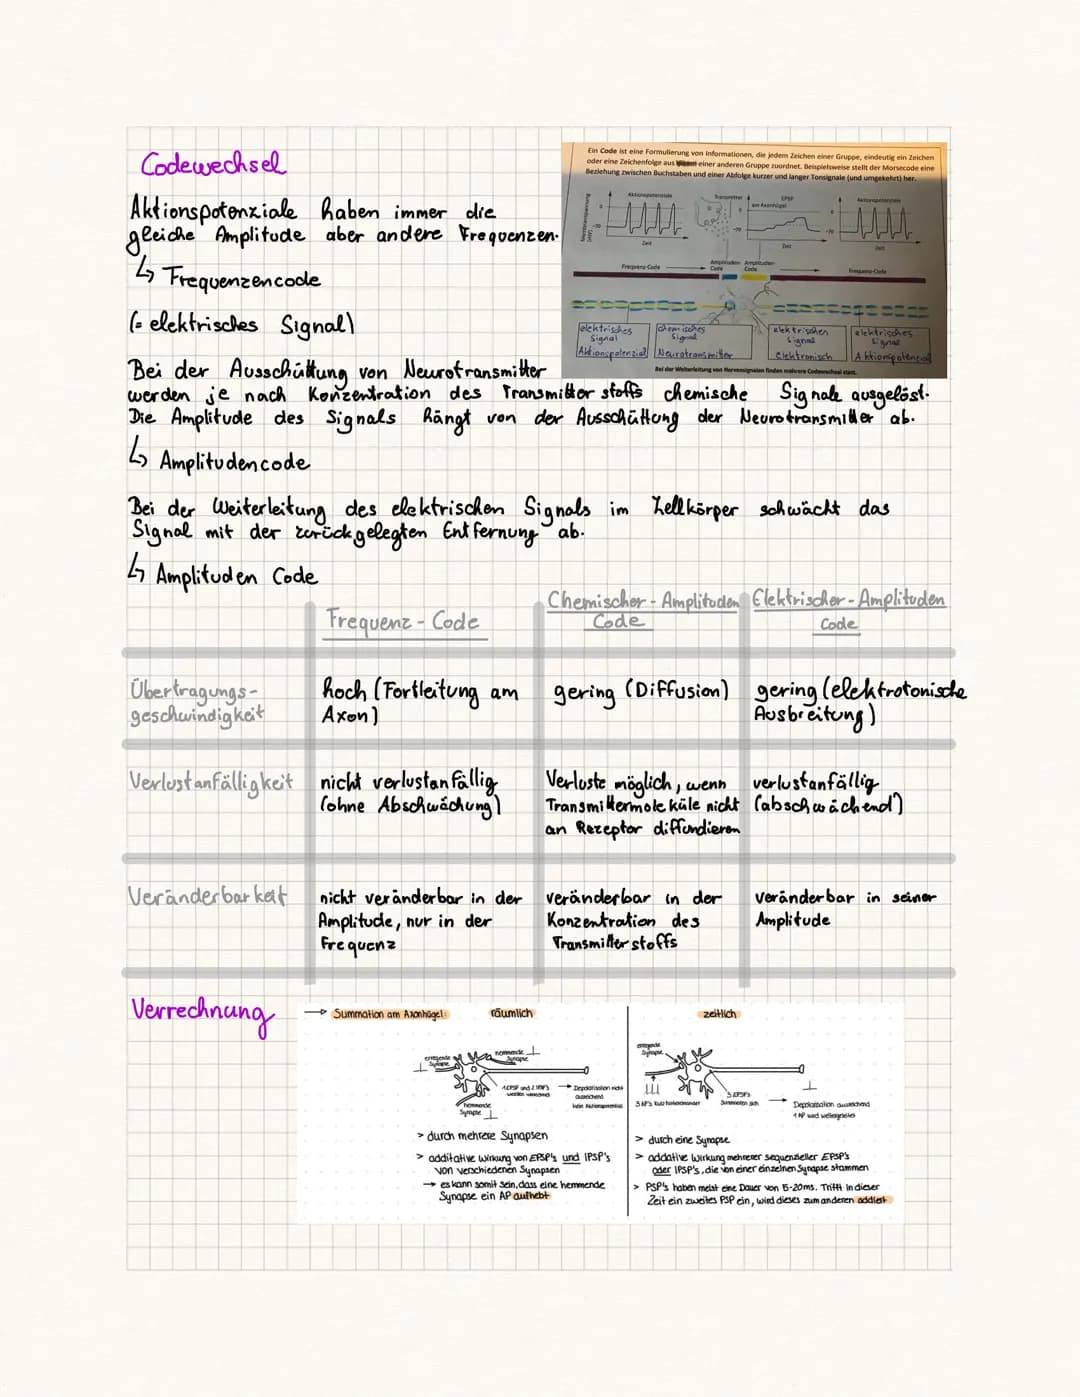 Codewechsel
Aktionspotenziale haben immer die
gleiche Amplitude aber andere Frequenzen.
↳ Frequenzencode
(= elektrisches Signal)
Ein Code ist eine Formulierung von Informationen, die jedem Zeichen einer Gruppe, eindeutig ein Zeichen
oder eine Zeichenfolge aus einer anderen Gruppe zuordnet. Beispielsweise stellt der Morsecode eine
Beziehung zwischen Buchstaben und einer Abfolge kurzer und langer Tonsignale (und umgekehrt) her.
Membranspannung
(mV)
Aktionspotenziale
0
-70
Zeit
Transmitter
EPSP
am Axonhügel
0
-70
Zeit
Aktionspotenziale
0
-70
Zeit
Frequenz-Code
Amplituden-
Code
Amplituden-
Code
Frequenz-Code
elektrisches
Signal
Aktionspotenzial
chemisches
Signal
Neurotransmitter
elektrischen
Signal
elektronisch
elektrisches
Signal
Aktionspotenzial
Bei der Weiterleitung von Nervensignalen finden mehrere Codewechsel statt.
Bei der Ausschüttung von Neurotransmitter
werden je nach Konzentration des Transmitterstoffs chemische Signale ausgelöst.
Die Amplitude des Signals hängt von der Ausschüttung der Neurotransmitter ab.
↳ Amplitudencode
Bei der Weiterleitung des elektrischen Signals im Zellkörper schwächt das
Signal mit der zurückgelegten Entfernung ab.
↳ Amplituden Code
Frequenz - Code
Chemischer - Amplituden
Code
Elektrischer - Amplituden
Code
Übertragungs-
geschwindigkeit
hoch (Fortleitung am
Axon)
gering (Diffusion)
gering (elektrotonische
Ausbreitung)
Verlustanfälligkeit
nicht verlustanfällig
(ohne Abschwächung)
Verluste möglich, wenn
Transmittermoleküle nicht
an Rezeptor diffundieren
verlustanfällig
(abschwächend)
Veränderbarkeit
nicht veränderbar in der
Amplitude, nur in der
Frequenz
veränderbar in der
Konzentration des
Transmitterstoffs
veränderbar in seiner
Amplitude
Verrechnung
→ Summation am Axonhügel:
räumlich
erregende
Synapse
hemmende
Synapse
hemmende
Synapse
1 EPSP und 2 IPSP's
werden verrechnet
→ Depolarisation nicht
ausreichend
kein Aktionspotential
> durch mehrere Synapsen
> additative Wirkung von EPSP's und IPSP's
von verschiedenen Synapsen
→ es kann somit sein, dass eine hemmende
Synapse ein AP aufhebt
zeitlich
erregende
Synapse
3 AP's kurz hintereinander
3 EPSP's
summieren sich
Depolarisation ausreichend
1 AP wird weitergeleitet
> durch eine Synapse
> addative Wirkung mehrerer sequenzieller EPSP's
oder IPSP's, die von einer einzelnen Synapse stammen
> PSP's haben meist eine Dauer von 15-20ms. Trifft in dieser
Zeit ein zweites PSP ein, wird dieses zum anderen addiert